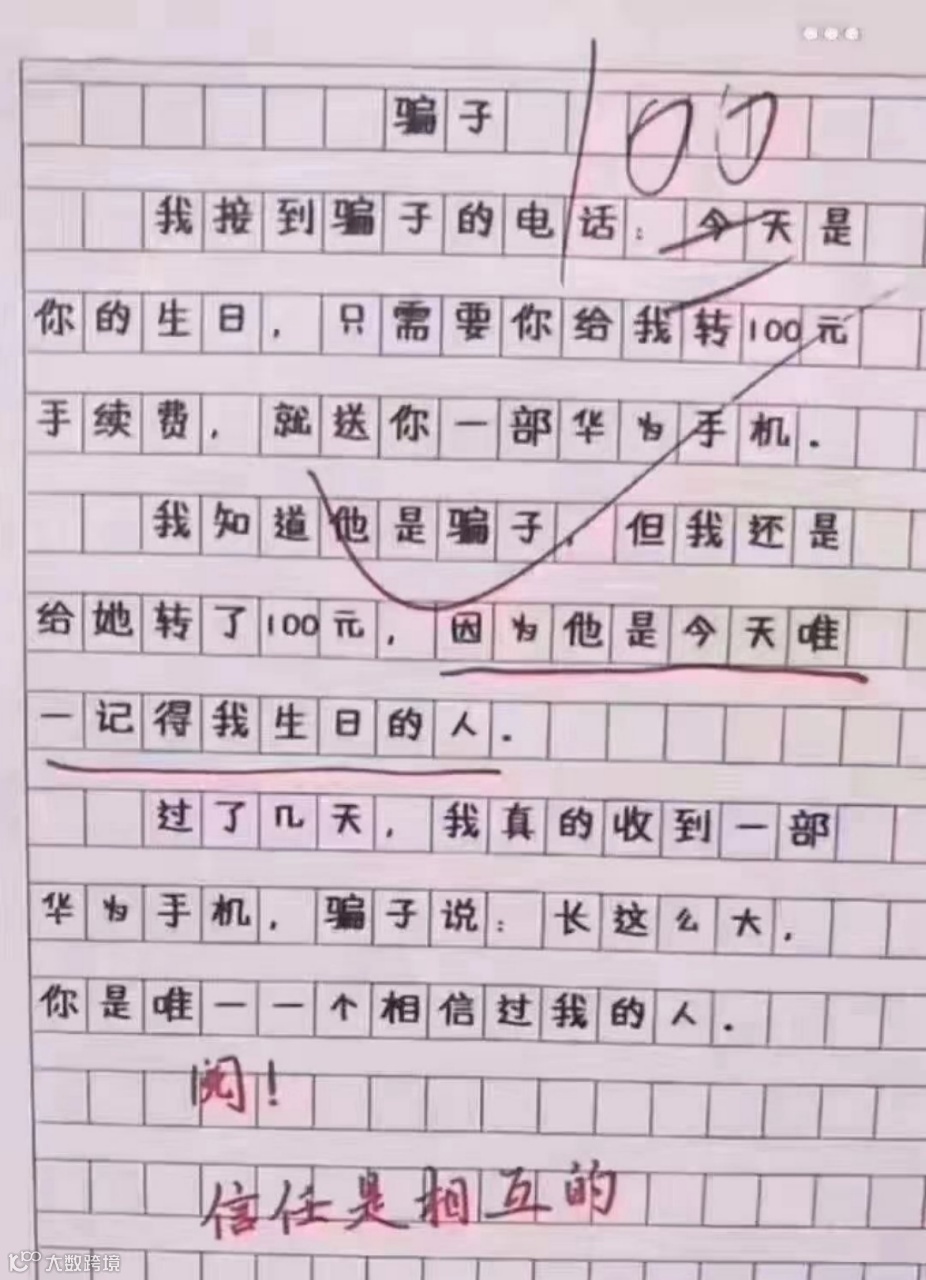 骗子
100
我接到骗子的电话：今天是
你的生日，只需要你给我转100元
手续费，就送你一部华为手机．
我知道他是骗子，但我还是
给她转了100元，因为他是今天唯
一记得我生日的人．
过了几天，我真的收到一部
华为手机，骗子说：长这么大，
你是唯一一个相信过我的人．
阅！
信任是相互的
大数跨境